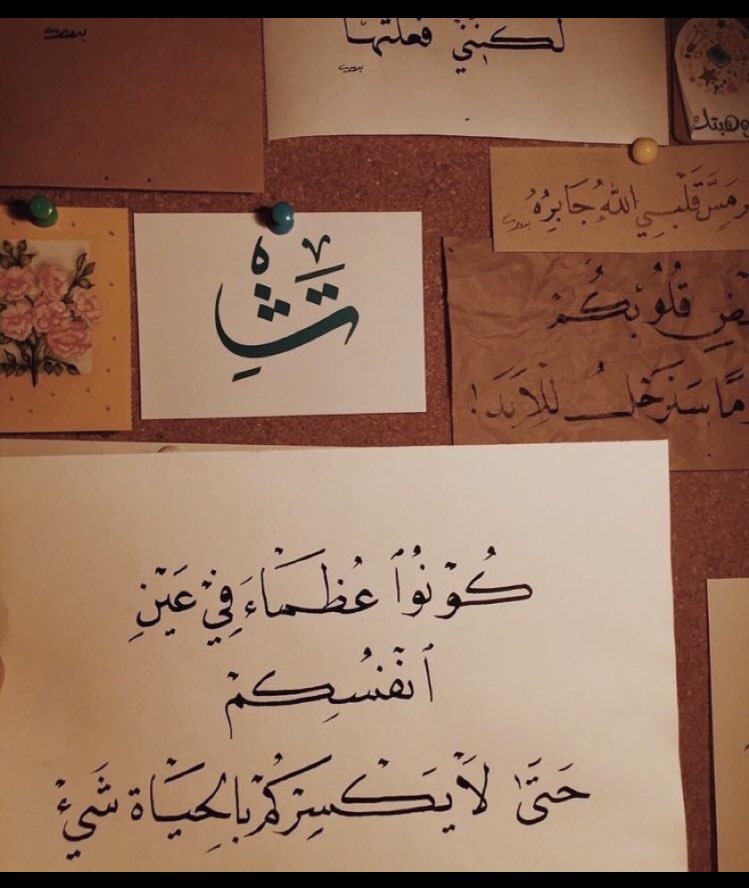 لَكِنَّنِي فَعَلْتُهَا
وهبتك
مَسَّ قَلْبِي اللهُ جَابِرُهُ
قُلُوْبِكُمْ
سَنَرْحَلُ لِلْأَبَدِ!
كُوْنُوْا عُظَمَاءَ فِيْ عَيْنِ
أَنْفُسِكُمْ
حَتَّىٰ لَا يَكْسِرَكُمْ بِالْحَيَاةِ شَيْءْ